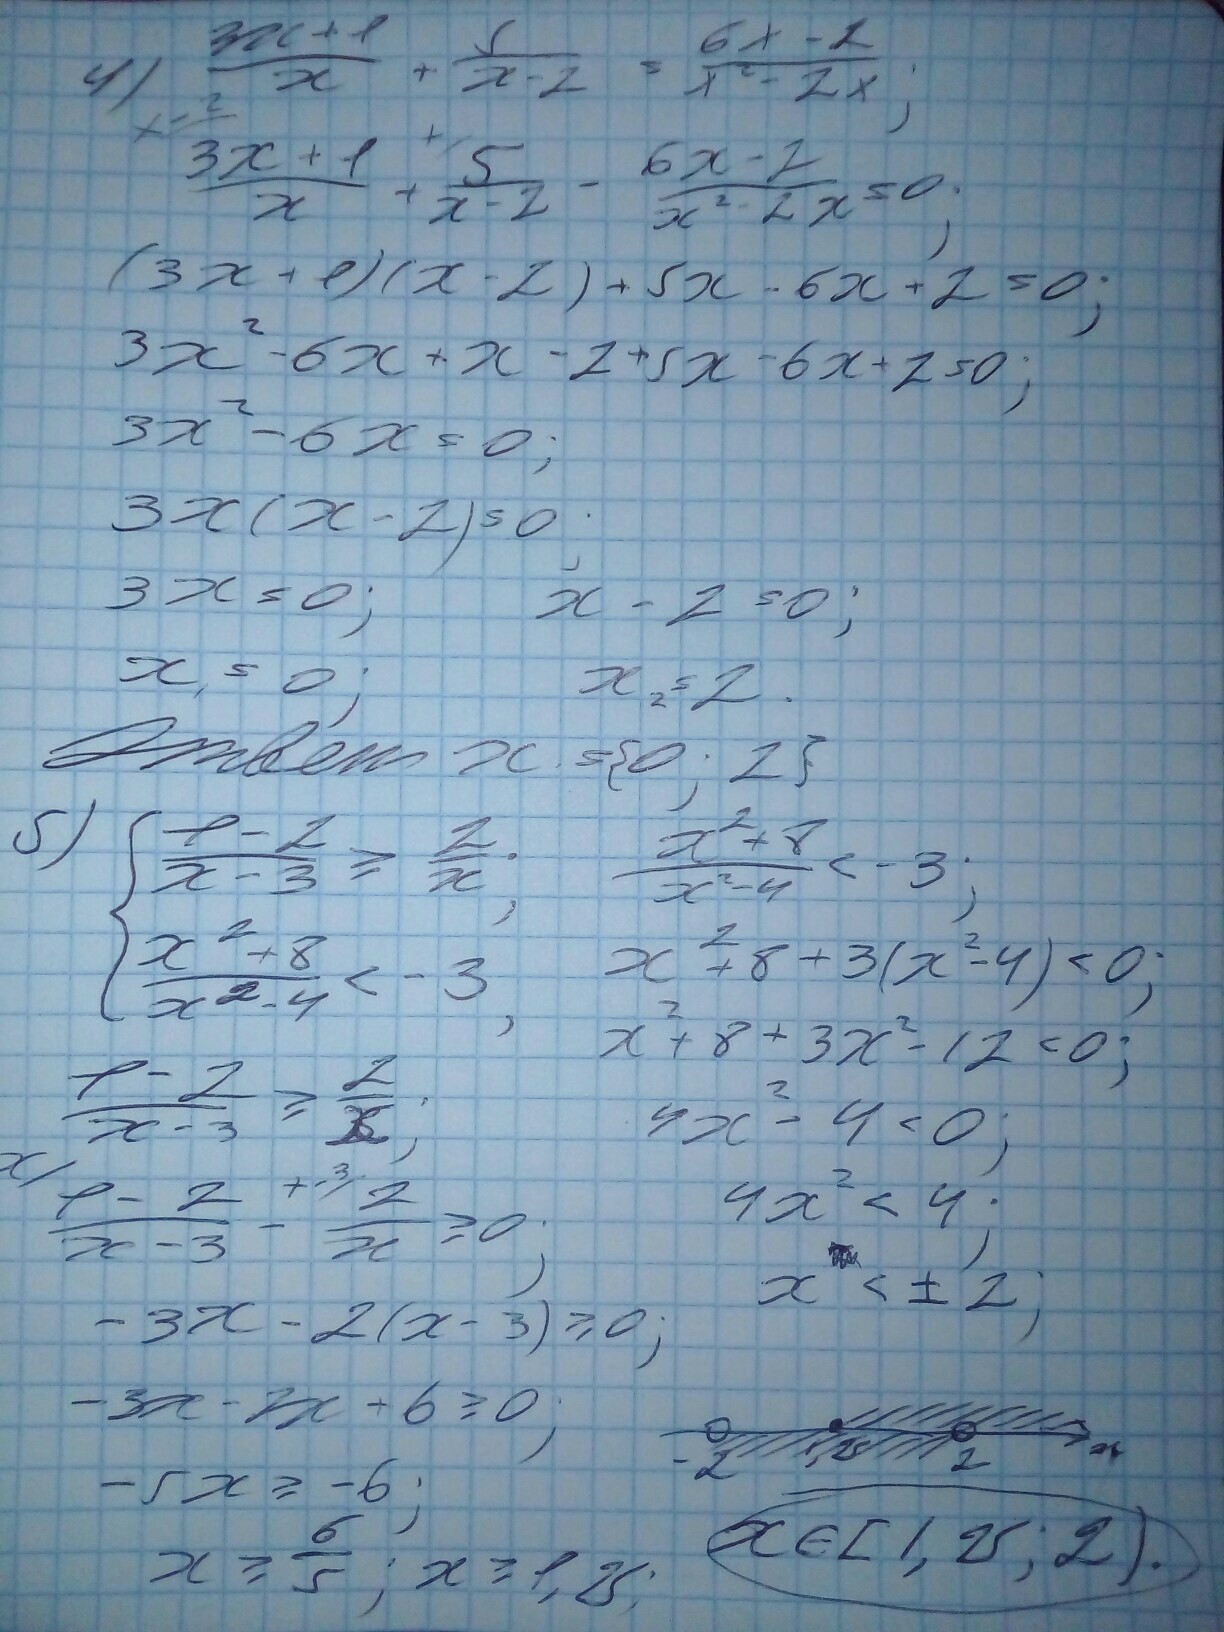 4) (3x+1)/x + 5/(x-2) = (6x-2)/(x²-2x);
x-2
(3x+1)/x + 5/(x-2) - (6x-2)/(x²-2x) = 0;
(3x+1)(x-2)+5x-6x+2=0;
3x²-6x+x-2+5x-6x+2=0;
3x²-6x=0;
3x(x-2)=0;
3x=0; x-2=0;
x₁=0; x₂=2.
Ответ x={0; 2}
5) { (1-2)/(x-3) ≥ 2/x;
(x²+8)/(x²-4) < -3;
(1-2)/(x-3) ≥ 2/x;
(1-2)/(x-3) - 2/x ≥0;
-3x-2(x-3)≥0;
-3x-2x+6≥0;
-5x≥-6;
x≥6/5; x≥1,25;
(x²+8)/(x²-4) < -3;
x²+8+3(x²-4)<0;
x²+8+3x²-12<0;
4x²-4<0;
4x²<4;
x<±2;
-2 1,25 2 x
x∈[1,25; 2).